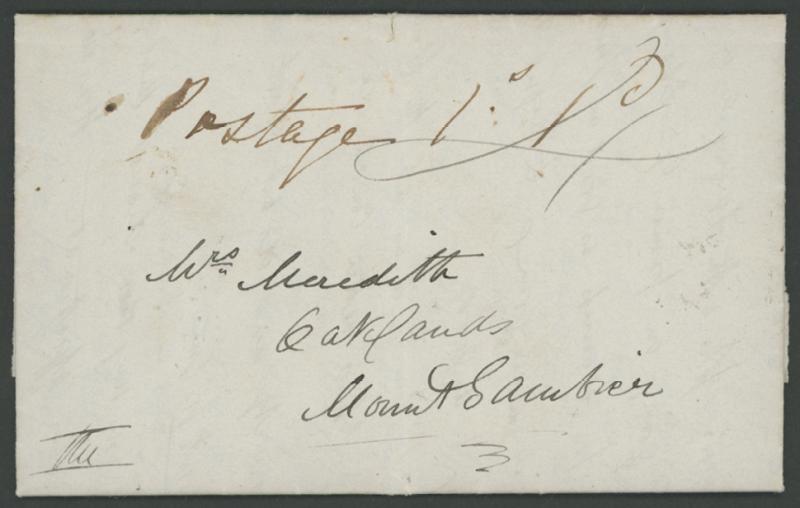 Postage 1s. 1d
Mrs Meredith
Oaklands
Mount Gambier